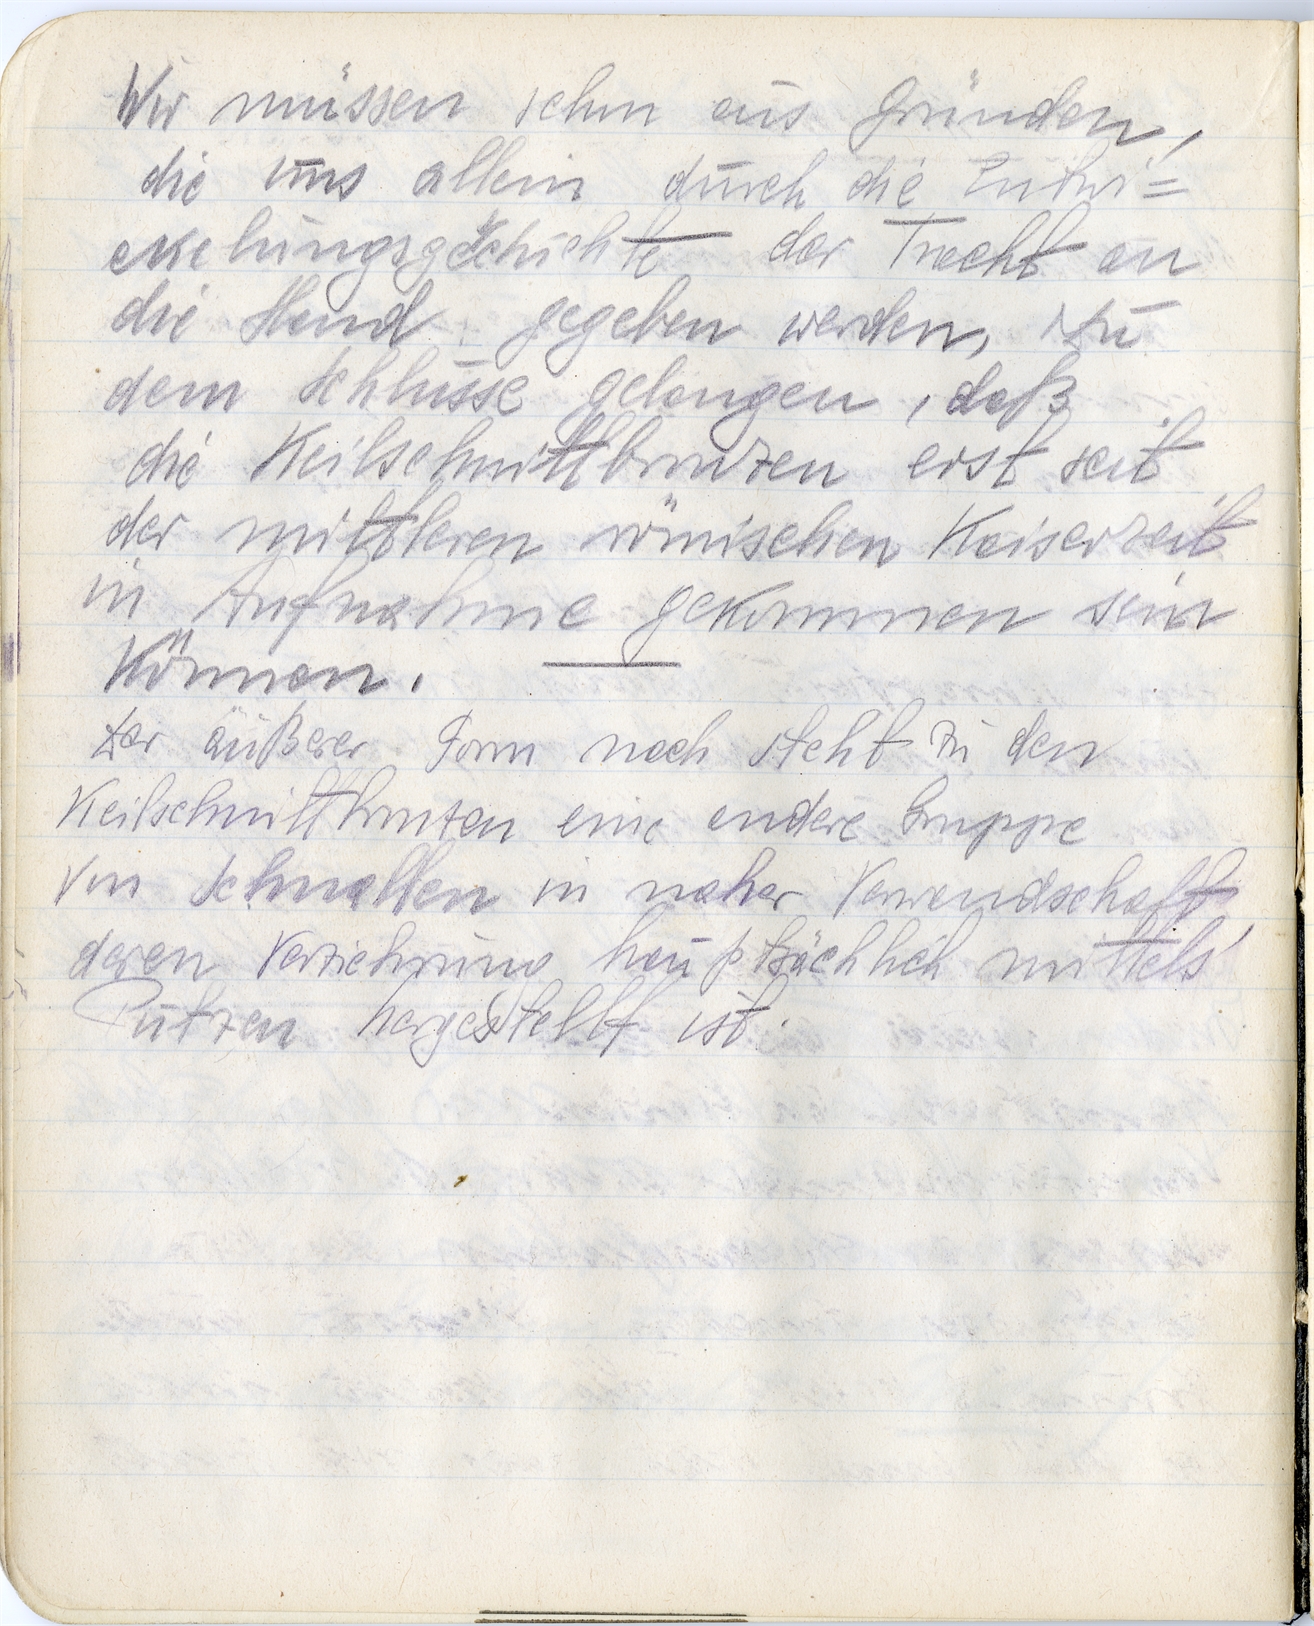 Wir müssen schon aus Gründen,
die uns allein durch die Entwi=
ckelungsgeschichte der Tracht an
die Hand gegeben werden, zu
dem Schlusse gelangen, daß
die Keilschnittbronzen erst seit
der mittleren römischen Kaiserzeit
in Aufnahme gekommen sein
können.
Der äußerer Form nach steht zu den
Keilschnittbronzen eine andere Gruppe
von Schnallen in naher Verwandschaft,
deren Verziehrung hauptsächlich mittels
Putzen hergestellt ist.